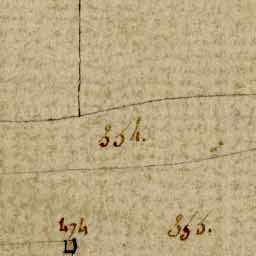 354.
474
355.